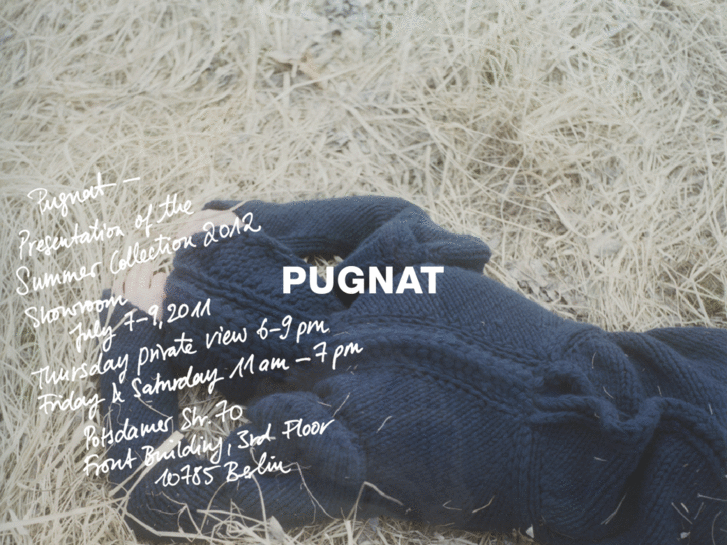 Pugnat –
Presentation of the
Summer Collection 2012
Showroom
July 7–9, 2011
Thursday private view 6–9 pm
Friday & Saturday 11 am – 7 pm
Potsdamer Str. 70
Front Building, 3rd Floor
10785 Berlin
PUGNAT